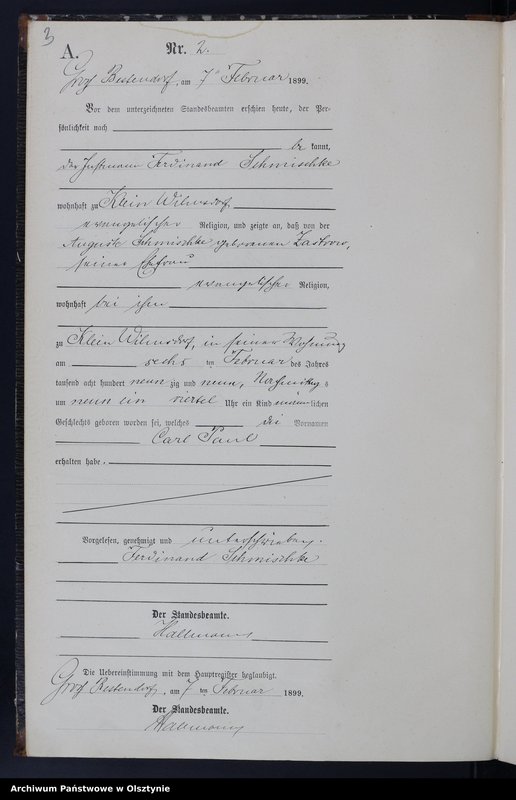 3
A.
Nr. 2.
Groß Bestendorf, am 7ten Februar 1899.
Vor dem unterzeichneten Standesbeamten erschien heute, der Per-
sönlichkeit nach
be kannt,
der Instmann Ferdinand Schmischke
wohnhaft zu Klein Wilmsdorf
evangelischer Religion, und zeigte an, daß von der
Auguste Schmischke geborenen Zastrow,
seiner Ehefrau
evangelischer Religion,
wohnhaft bei ihm
zu Klein Wilmsdorf, in seiner Wohnung
am sechs ten Februar des Jahres
tausend acht hundert neun zig und neun, Nachmittag s
um neun ein viertel Uhr ein Kind männ lichen
Geschlechts geboren worden sei, welches die Vornamen
Carl Paul
erhalten habe.
Vorgelesen, genehmigt und unterschrieben.
Ferdinand Schmischke
Der Standesbeamte.
Hallmann
Die Uebereinstimmung mit dem Hauptregister beglaubigt.
Groß Bestendorf, am 7 ten Februar 1899.
Der Standesbeamte.
Hallmann
Archiwum Państwowe w Olsztynie